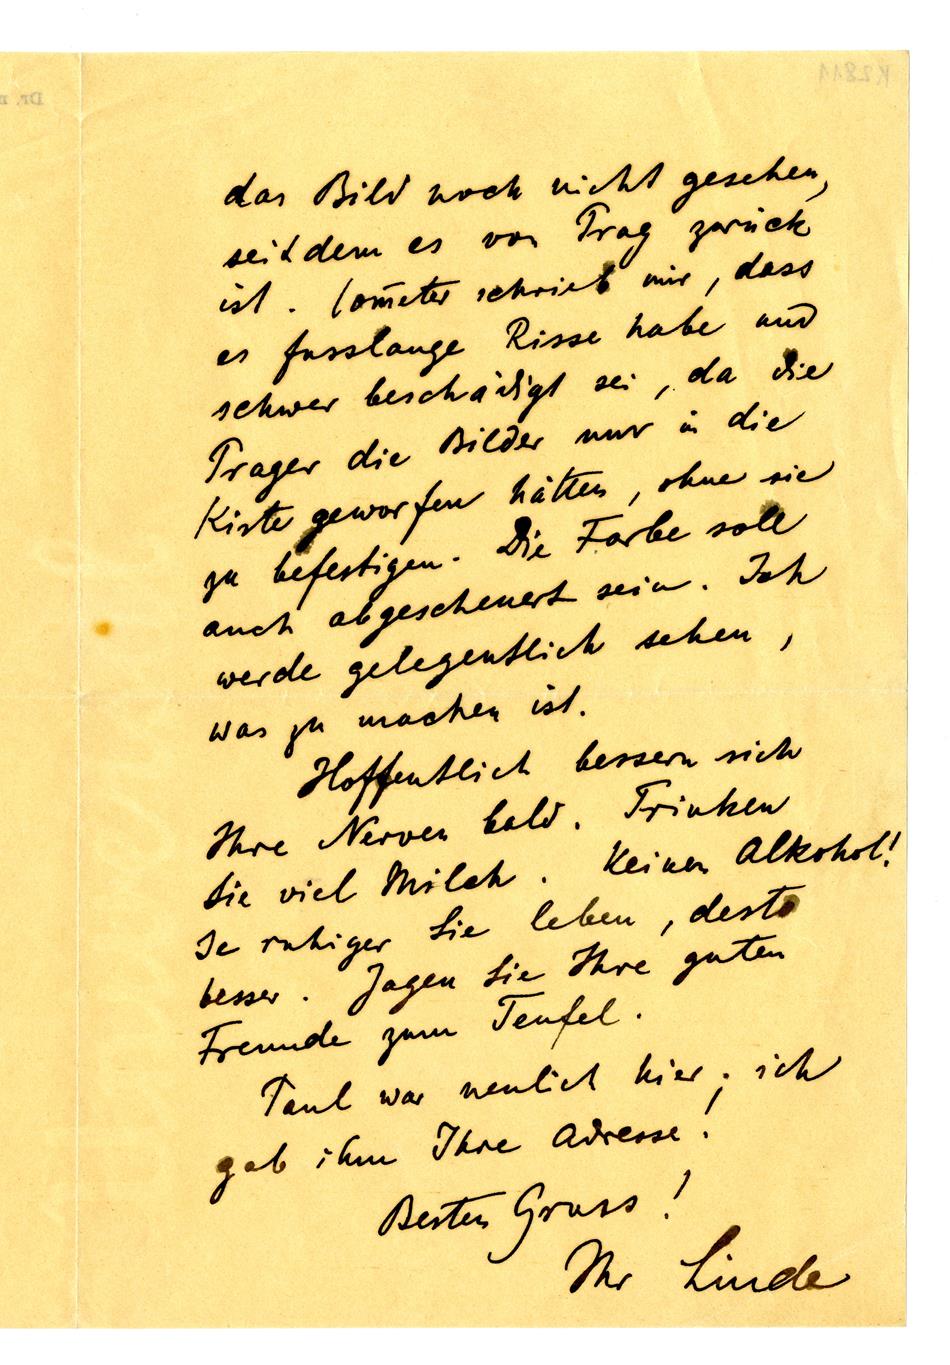 K2811
Dr.
das Bild noch nicht gesehen,
seitdem es von Prag zurück
ist. Cometer schrieb mir, dass
es fusslange Risse habe und
schwer beschädigt sei, da die
Prager die Bilder nur in die
Kiste geworfen hätten, ohne sie
zu befestigen. Die Farbe soll
auch abgescheuert sein. Ich
werde gelegentlich sehen,
was zu machen ist.
Hoffentlich bessern sich
Ihre Nerven bald. Trinken
Sie viel Milch. Keinen Alkohol!
Je ruhiger Sie leben, desto
besser. Jagen Sie Ihre guten
Freunde zum Teufel.
Paul war neulich hier; ich
gab ihm Ihre Adresse!
Besten Gruss!
Ihr Linde